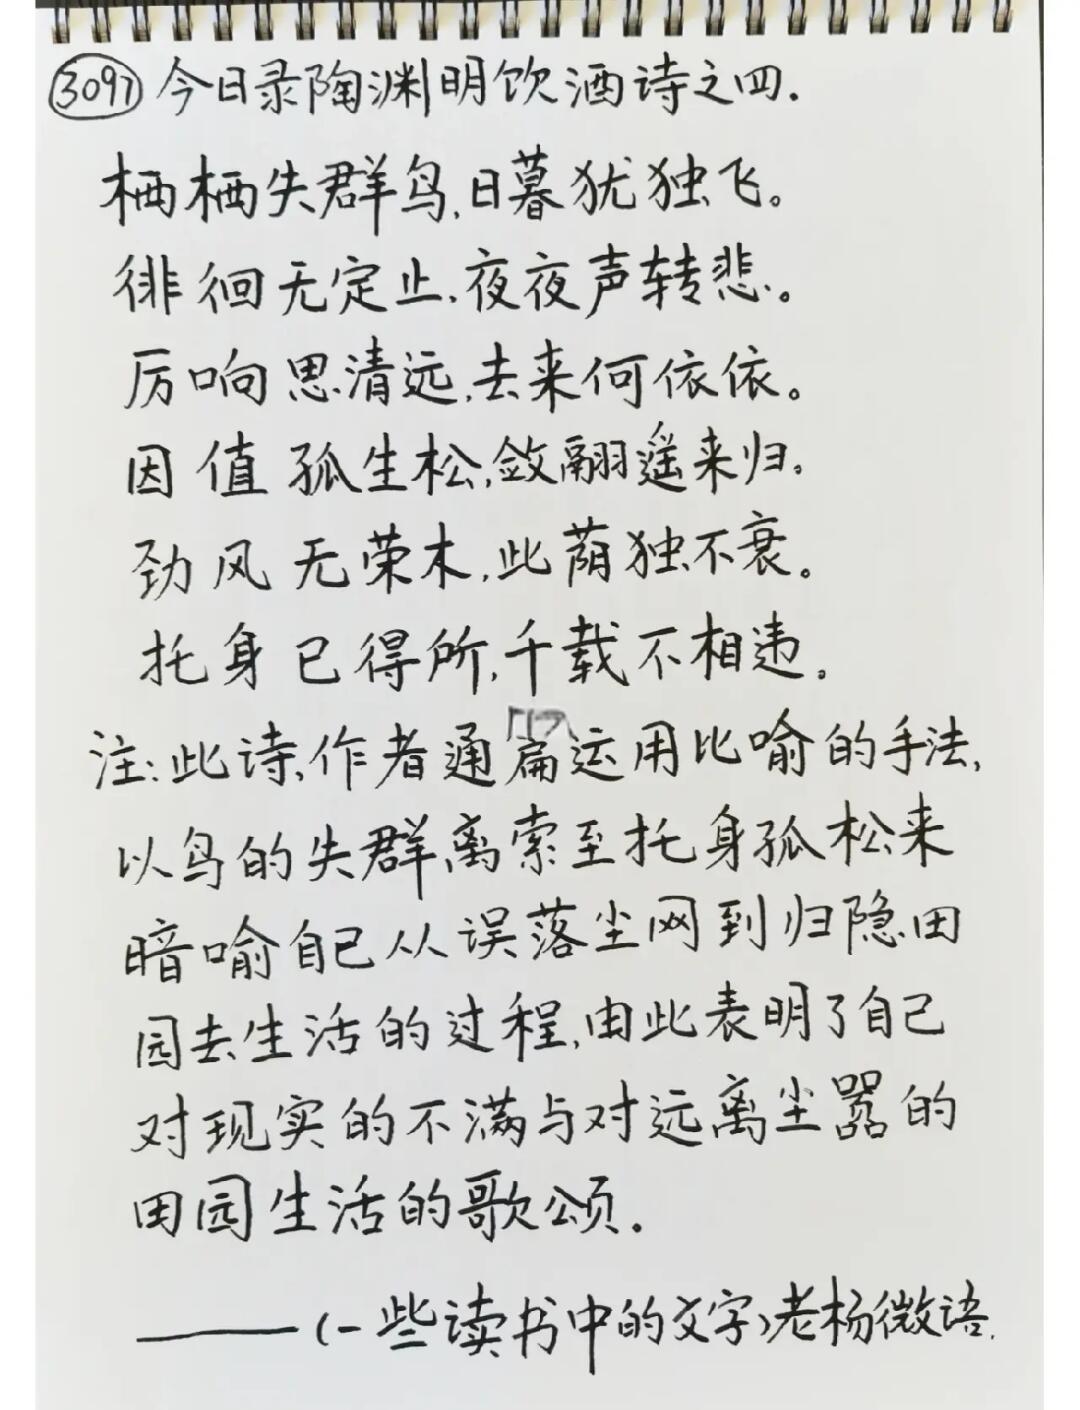 3097 今日录陶渊明饮酒诗之四.
栖栖失群鸟,日暮犹独飞。
徘徊无定止,夜夜声转悲。
厉响思清远,去来何依依。
因值孤生松,敛翮遥来归。
劲风无荣木,此荫独不衰。
托身已得所,千载不相违。
注:此诗,作者通篇运用比喻的手法,
以鸟的失群离索至托身孤松来
暗喻自己从误落尘网到归隐田
园去生活的过程,由此表明了自己
对现实的不满与对远离尘嚣的
田园生活的歌颂.
——(一些读书中的文字)老杨微语.